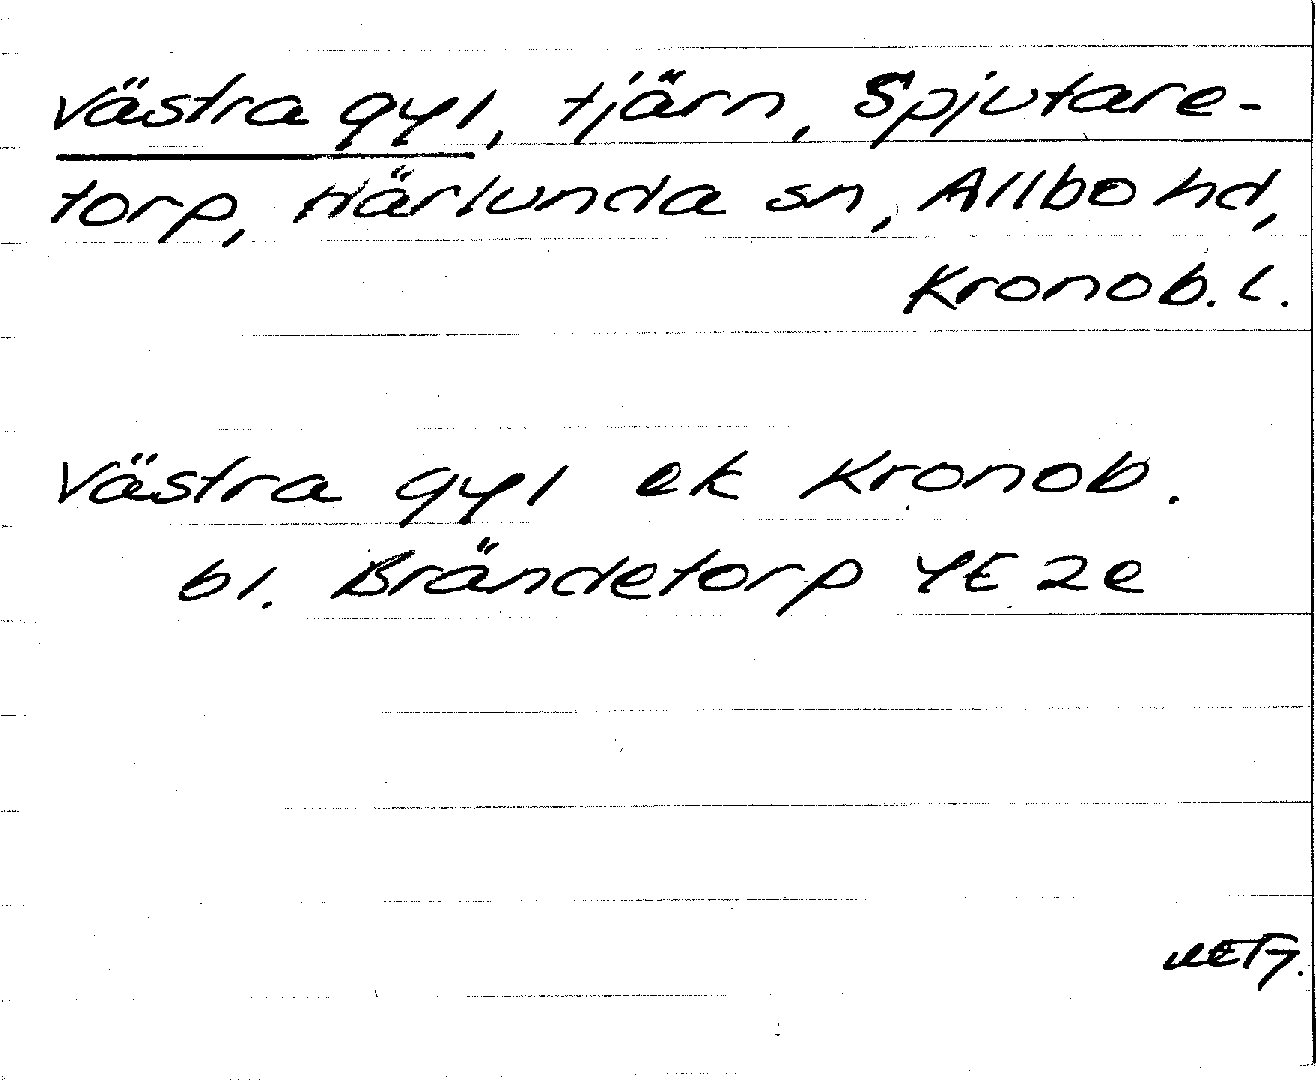 Västra gyl, tjärn, Spjutare-
torp, Härlunda sn, Allbo hd,
Kronob. l.
Västra gyl ek Kronob.
bl. Brändetorp 4E 2e